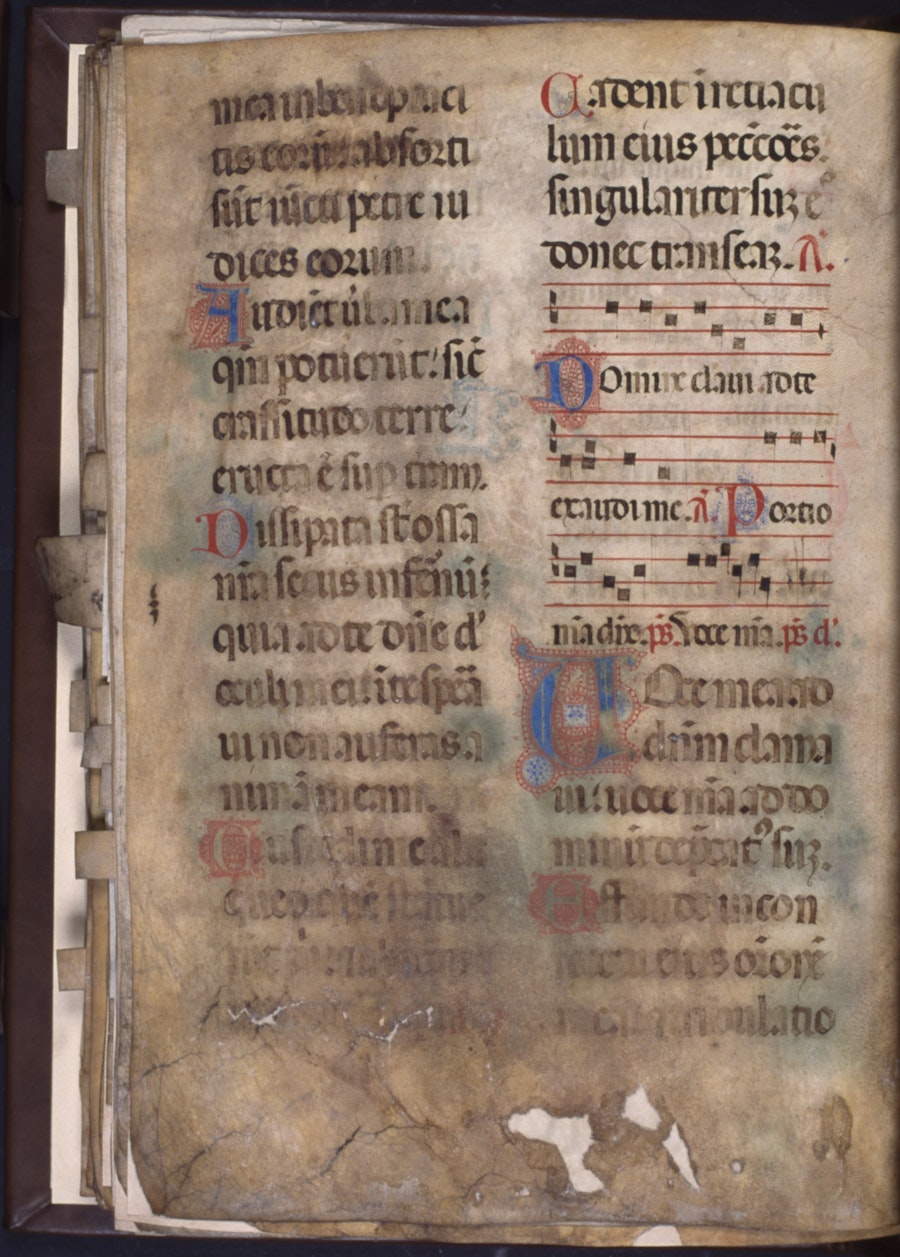 mea in beneplaci
tis eorū absorti
sūt iūcti petre iu
dices eorum.
Audiēt ūba mea
qm̄ potuerūt: sic̄
crassitudo terre
eructa ē sup
Dissipata sūt ossa
nr̄a secus infernū:
quia ad te dn̄e d'
oculi mei ī te spera
ui non auferas a
nimā meam.
Custodi me a la
queo quē statue
Cadent ī retiacu
lum eius pecc̄cōes
singulariter suꝫ ē
donec transeaꝫ. A.
Domine clamaui ad te
exaudi me. A. Portio
mea dn̄e. ps̄. Voce mea. ps̄ d'.
Voce mea ad
dn̄m clama
ui: uoce mea ad do
minū deprecat9 suꝫ.
Effundo in con
spectu eius orōnē
meā tribulatio